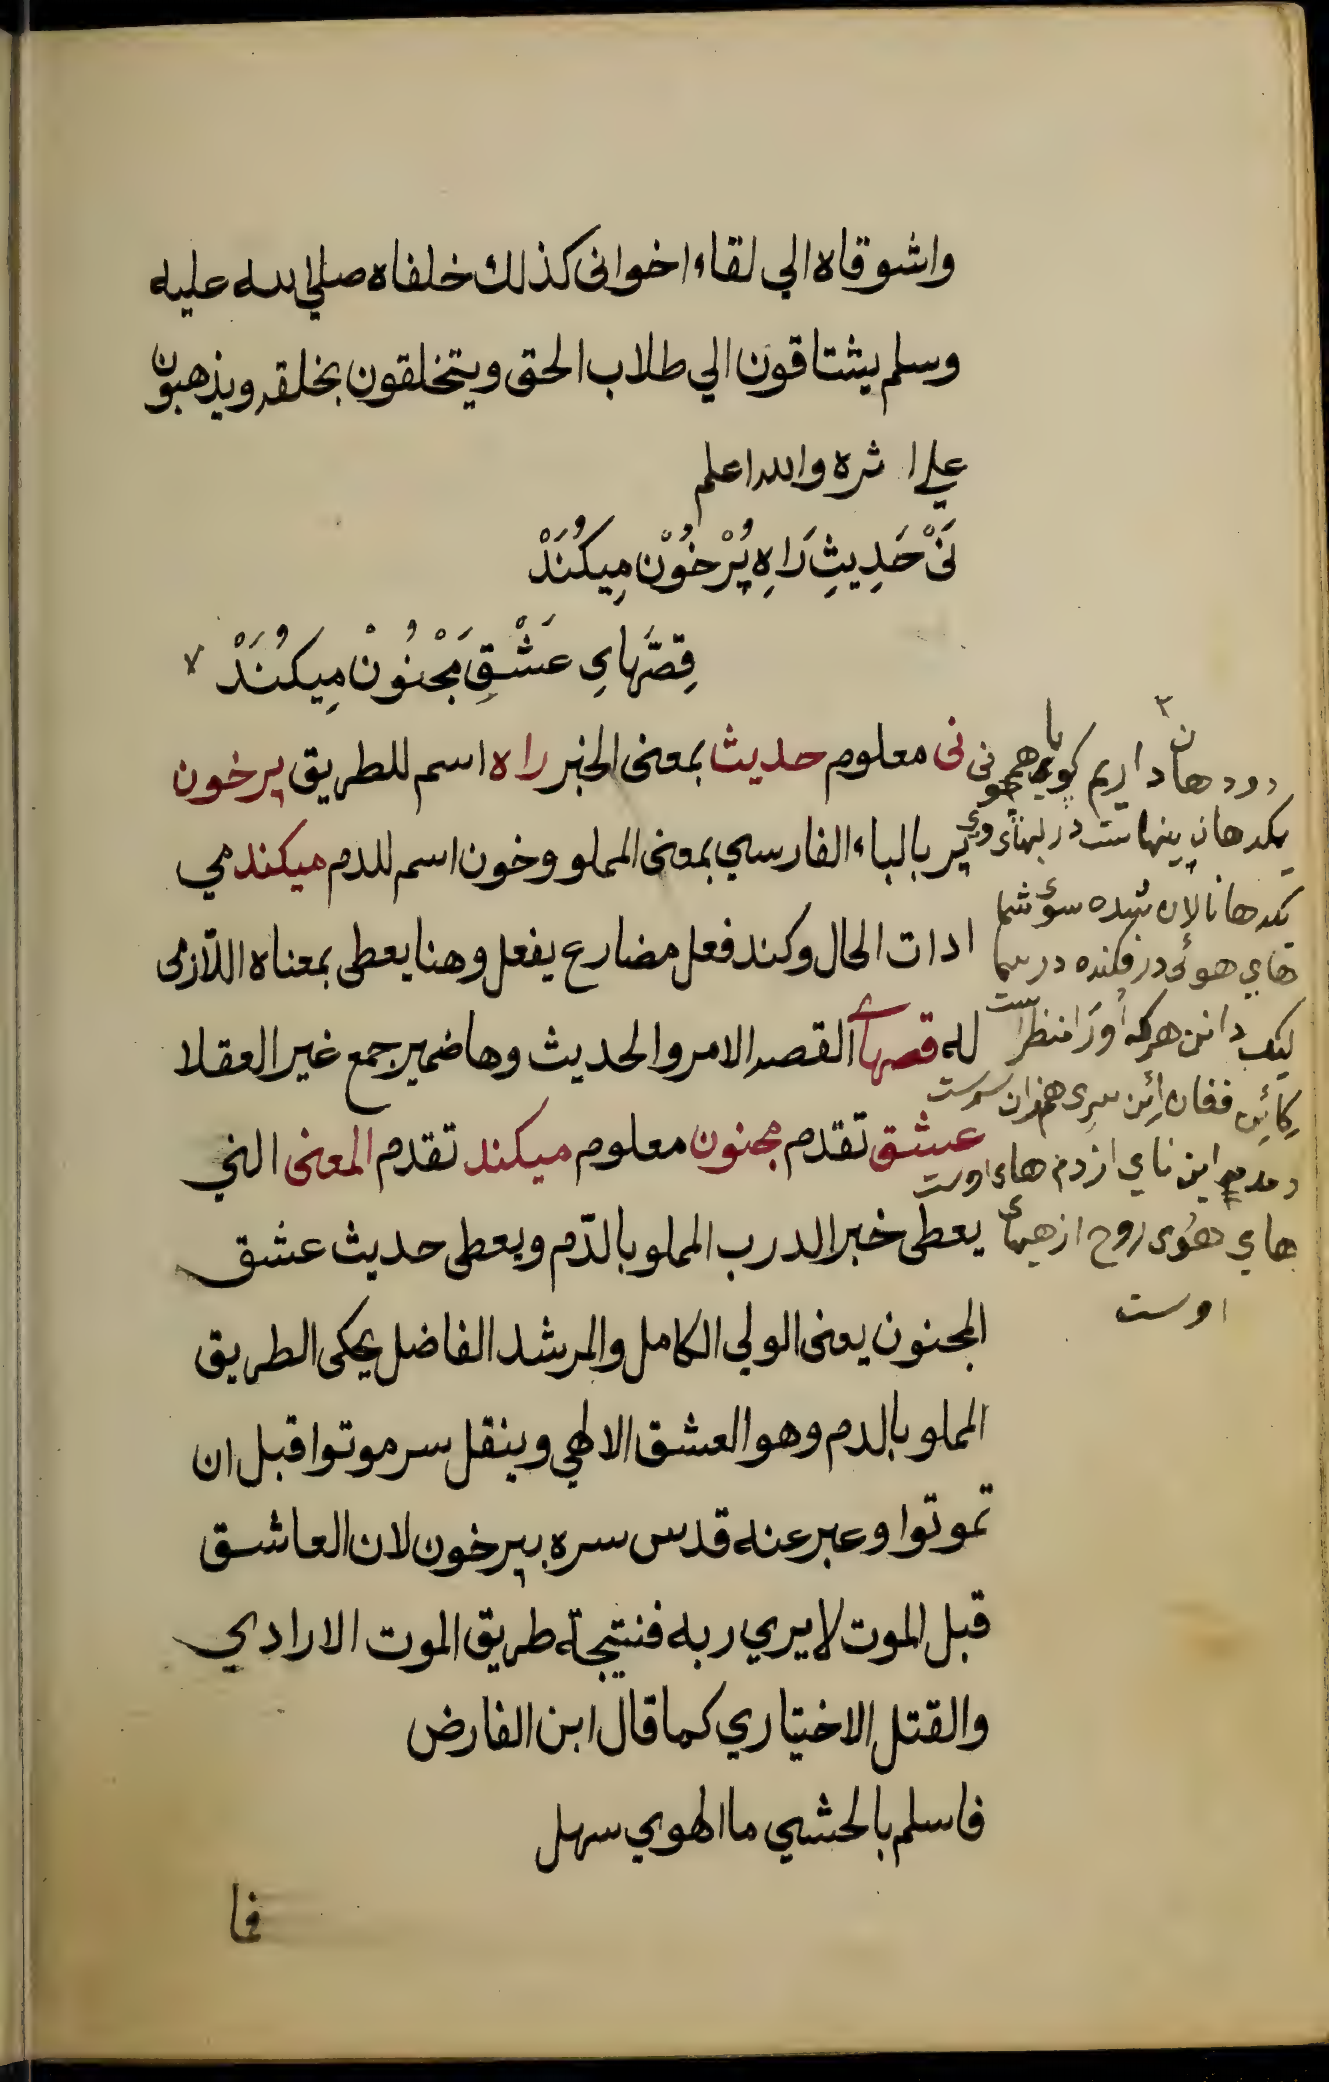 واشوقاه الي لقاء اخوانى كذلك خلفاه صلي الله عليه
وسلم يشتاقون الي طلاب الحق ويتخلقون بخلقه ويذهبون
علي اثره والله اعلم
نَىْ حَدِيثِ رَاهِ پُرْخُوْن مِيكُنَدْ
قِصَّهَاىِ عَشْقِ مَجْنُوْن مِيكُنَدْ ٧
نى معلوم حديث بمعنى الخبر راه اسم للطريق پرخون
پر بالباء الفارسي بمعنى المملو وخون اسم للدم ميكند مي
ادات الحال وكند فعل مضارع يفعل وهنا يعطى بمعناه اللازمى
له قصهاى القصه الامر والحديث وها ضمير جمع غير العقلا
عشق تقدم مجنون معلوم ميكند تقدم المعنى الني
يعطى خبر الدرب المملو بالدّم ويعطى حديث عشق
المجنون يعنى الولي الكامل والمرشد الفاضل يحكى الطريق
المملو بالدم وهو العشق الالهي وينقل سر موتوا قبل ان
تموتوا وعبر عنه قدس سره بپرخون لان العاشق
قبل الموت لا يري ربه فنتيجة طريق الموت الارادي
والقتل الاختياري كما قال ابن الفارض
فاسلم بالحشي ما الهوي سهل
فما
دودهان داريم كويا همچو نى
يكدهان پنهانست در لبهاى وي
يكدهان نالان شده سوى شما
هاي هوئى در فكنده در سما
ليك داند هركه اورا منظر است
كاين فغان اين سرى هم زان سرست
دمدمه اين ناي از دم هاى اوست
هاي هوى روح از هيهاى
اوست